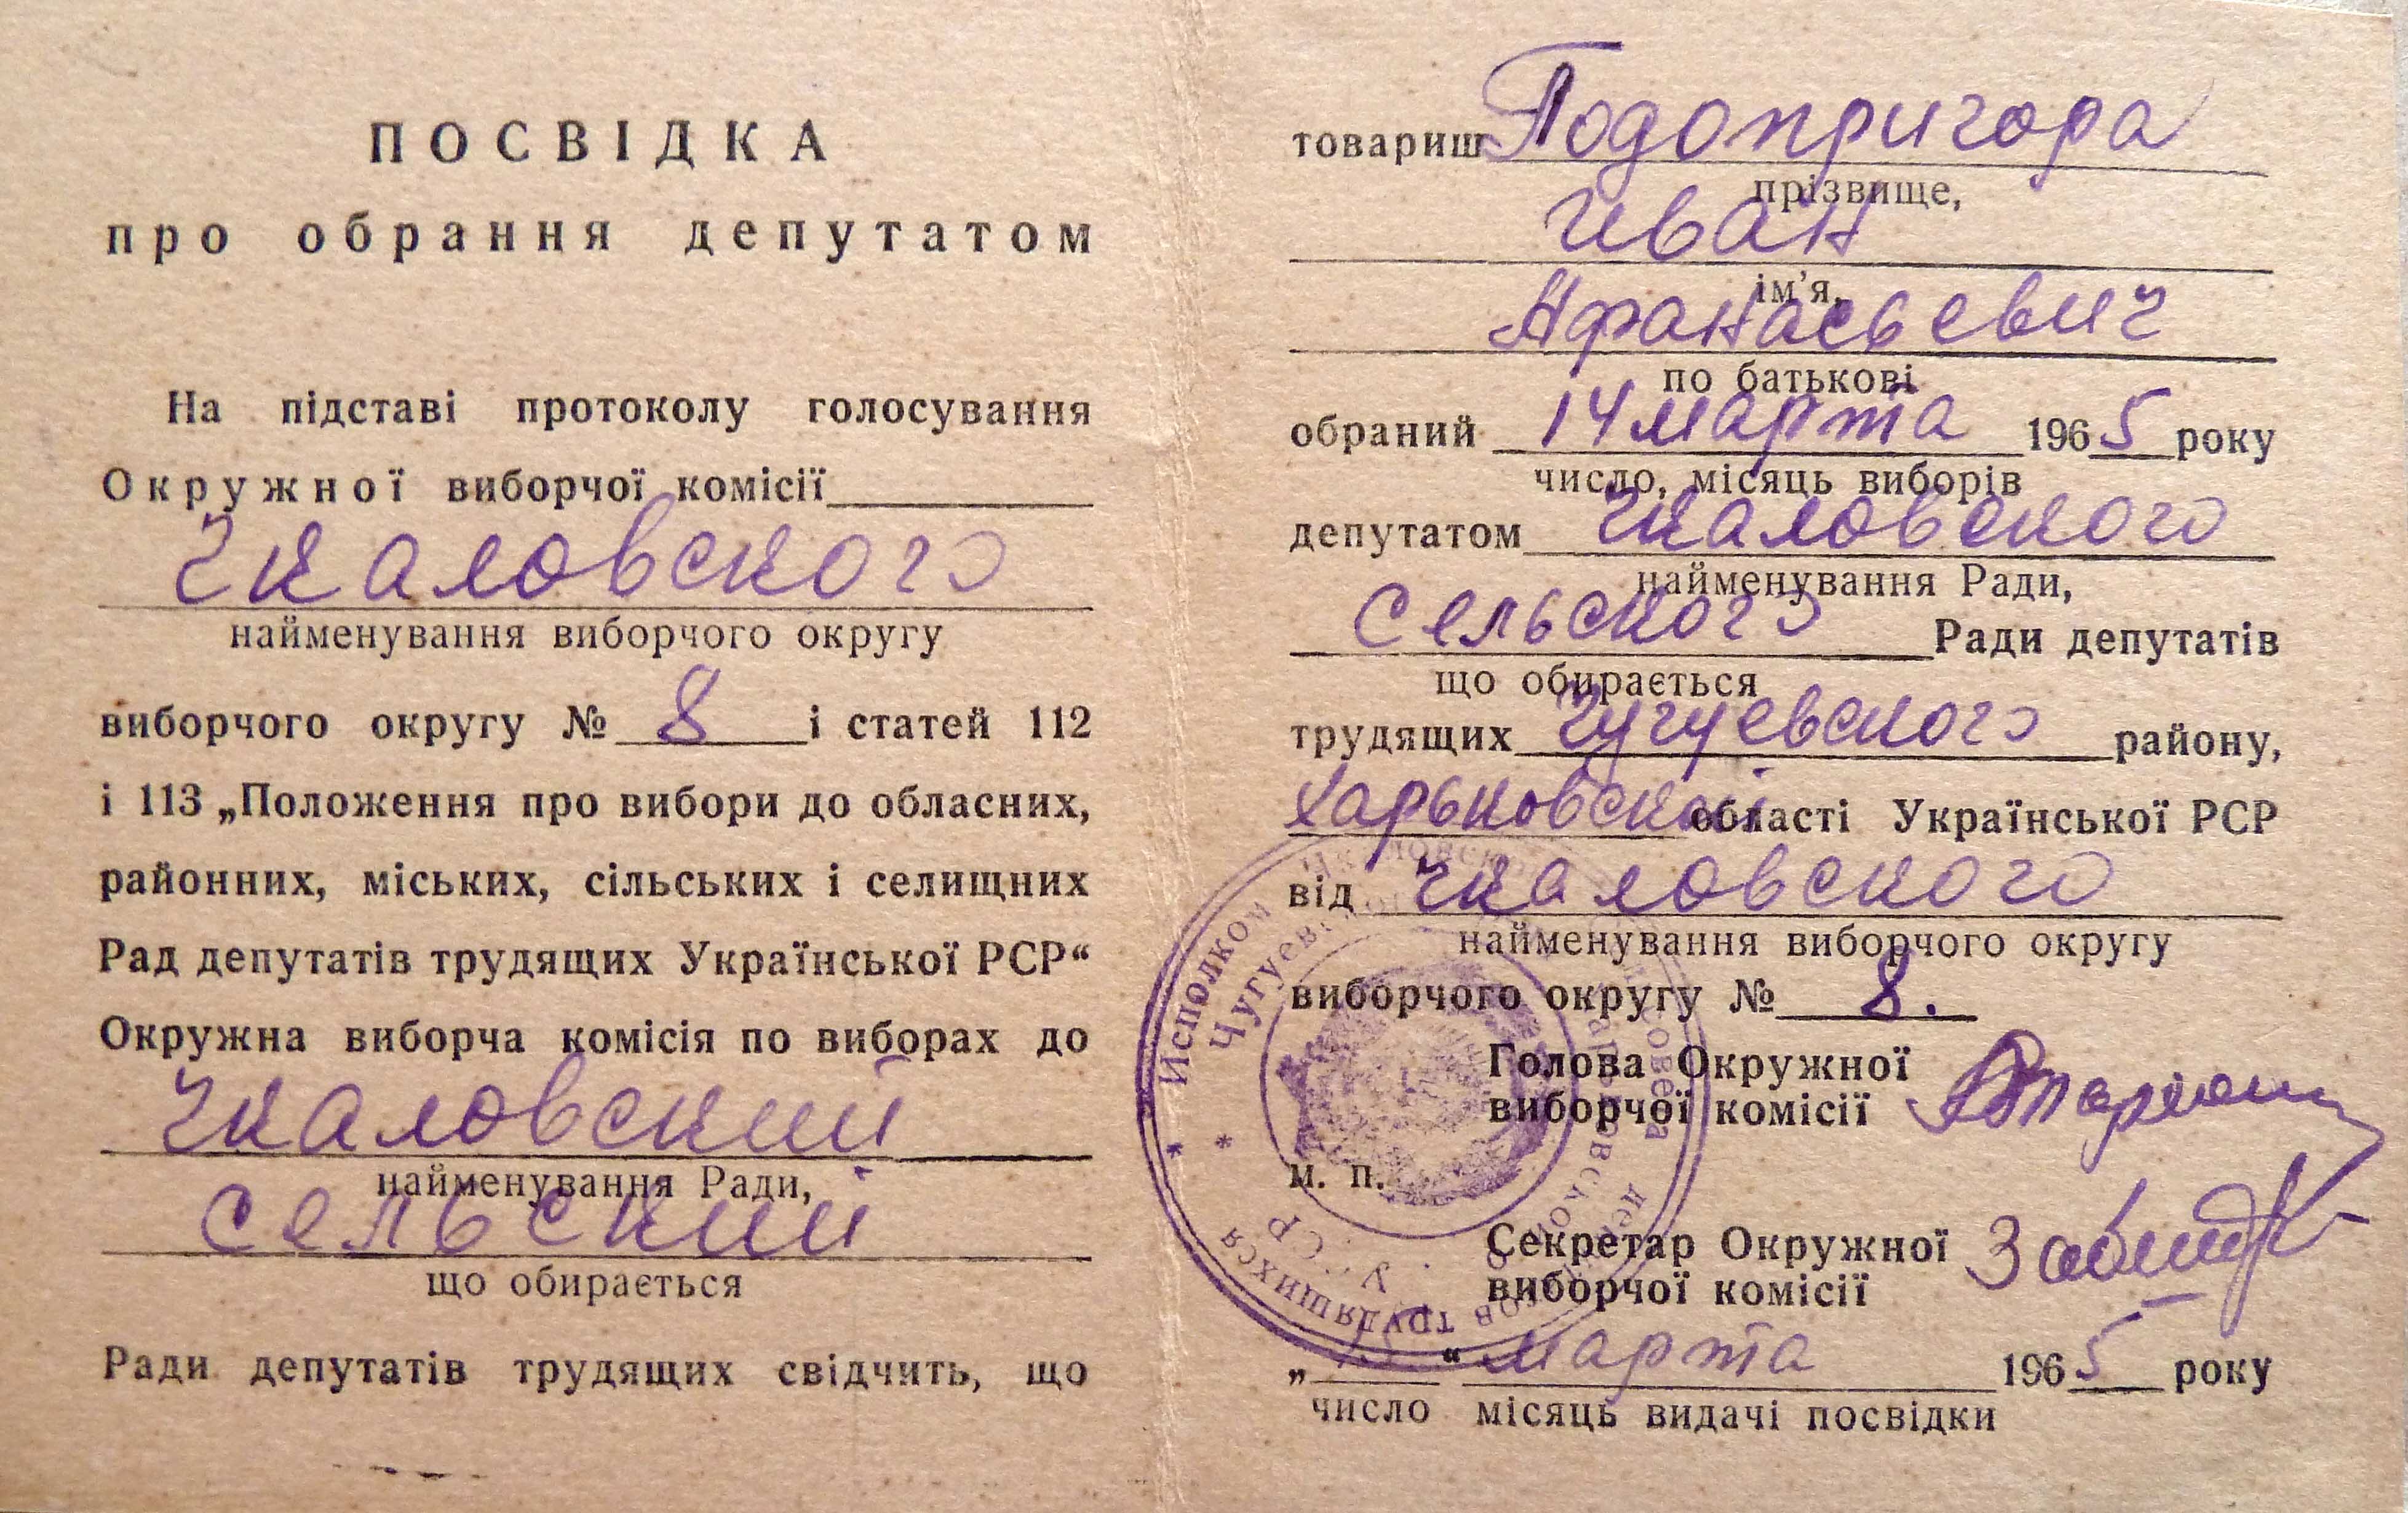 ПОСВІДКА
про обрання депутатом
На підставі протоколу голосування
Окружної виборчої комісії
Чкаловского
найменування виборчого округу
виборчого округу № 8 і статей 112
і 113 „Положення про вибори до обласних,
районних, міських, сільських і селищних
Рад депутатів трудящих Української РСР“
Окружна виборча комісія по виборах до
Чкаловский
найменування Ради,
сельский
що обирається
Ради депутатів трудящих свідчить, що
товариш Подопригора
прізвище,
Иван
ім'я,
Афанасьевич
по батькові
обраний 14 марта 1965 року
число, місяць виборів
депутатом Чкаловского
найменування Ради,
сельского Ради депутатів
що обирається
трудящих Чугуевского району,
Харьковской області Української РСР
від Чкаловского
найменування виборчого округу
виборчого округу № 8.
Голова Окружної
виборчої комісії
м. п.
Секретар Окружної
виборчої комісії
„15“ марта 1965 року
число місяць видачі посвідки
* Исполком Чкаловского совета трудящихся
* Чугуев Харьковской УССР